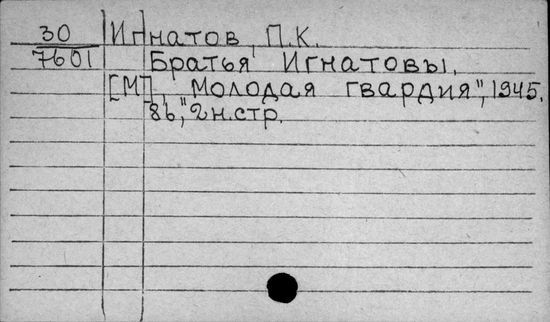 30 Игнатов, П.К.
7601 Братья Игнатовы.
[М], "Молодая гвардия", 1945.
86, 2 н.стр.